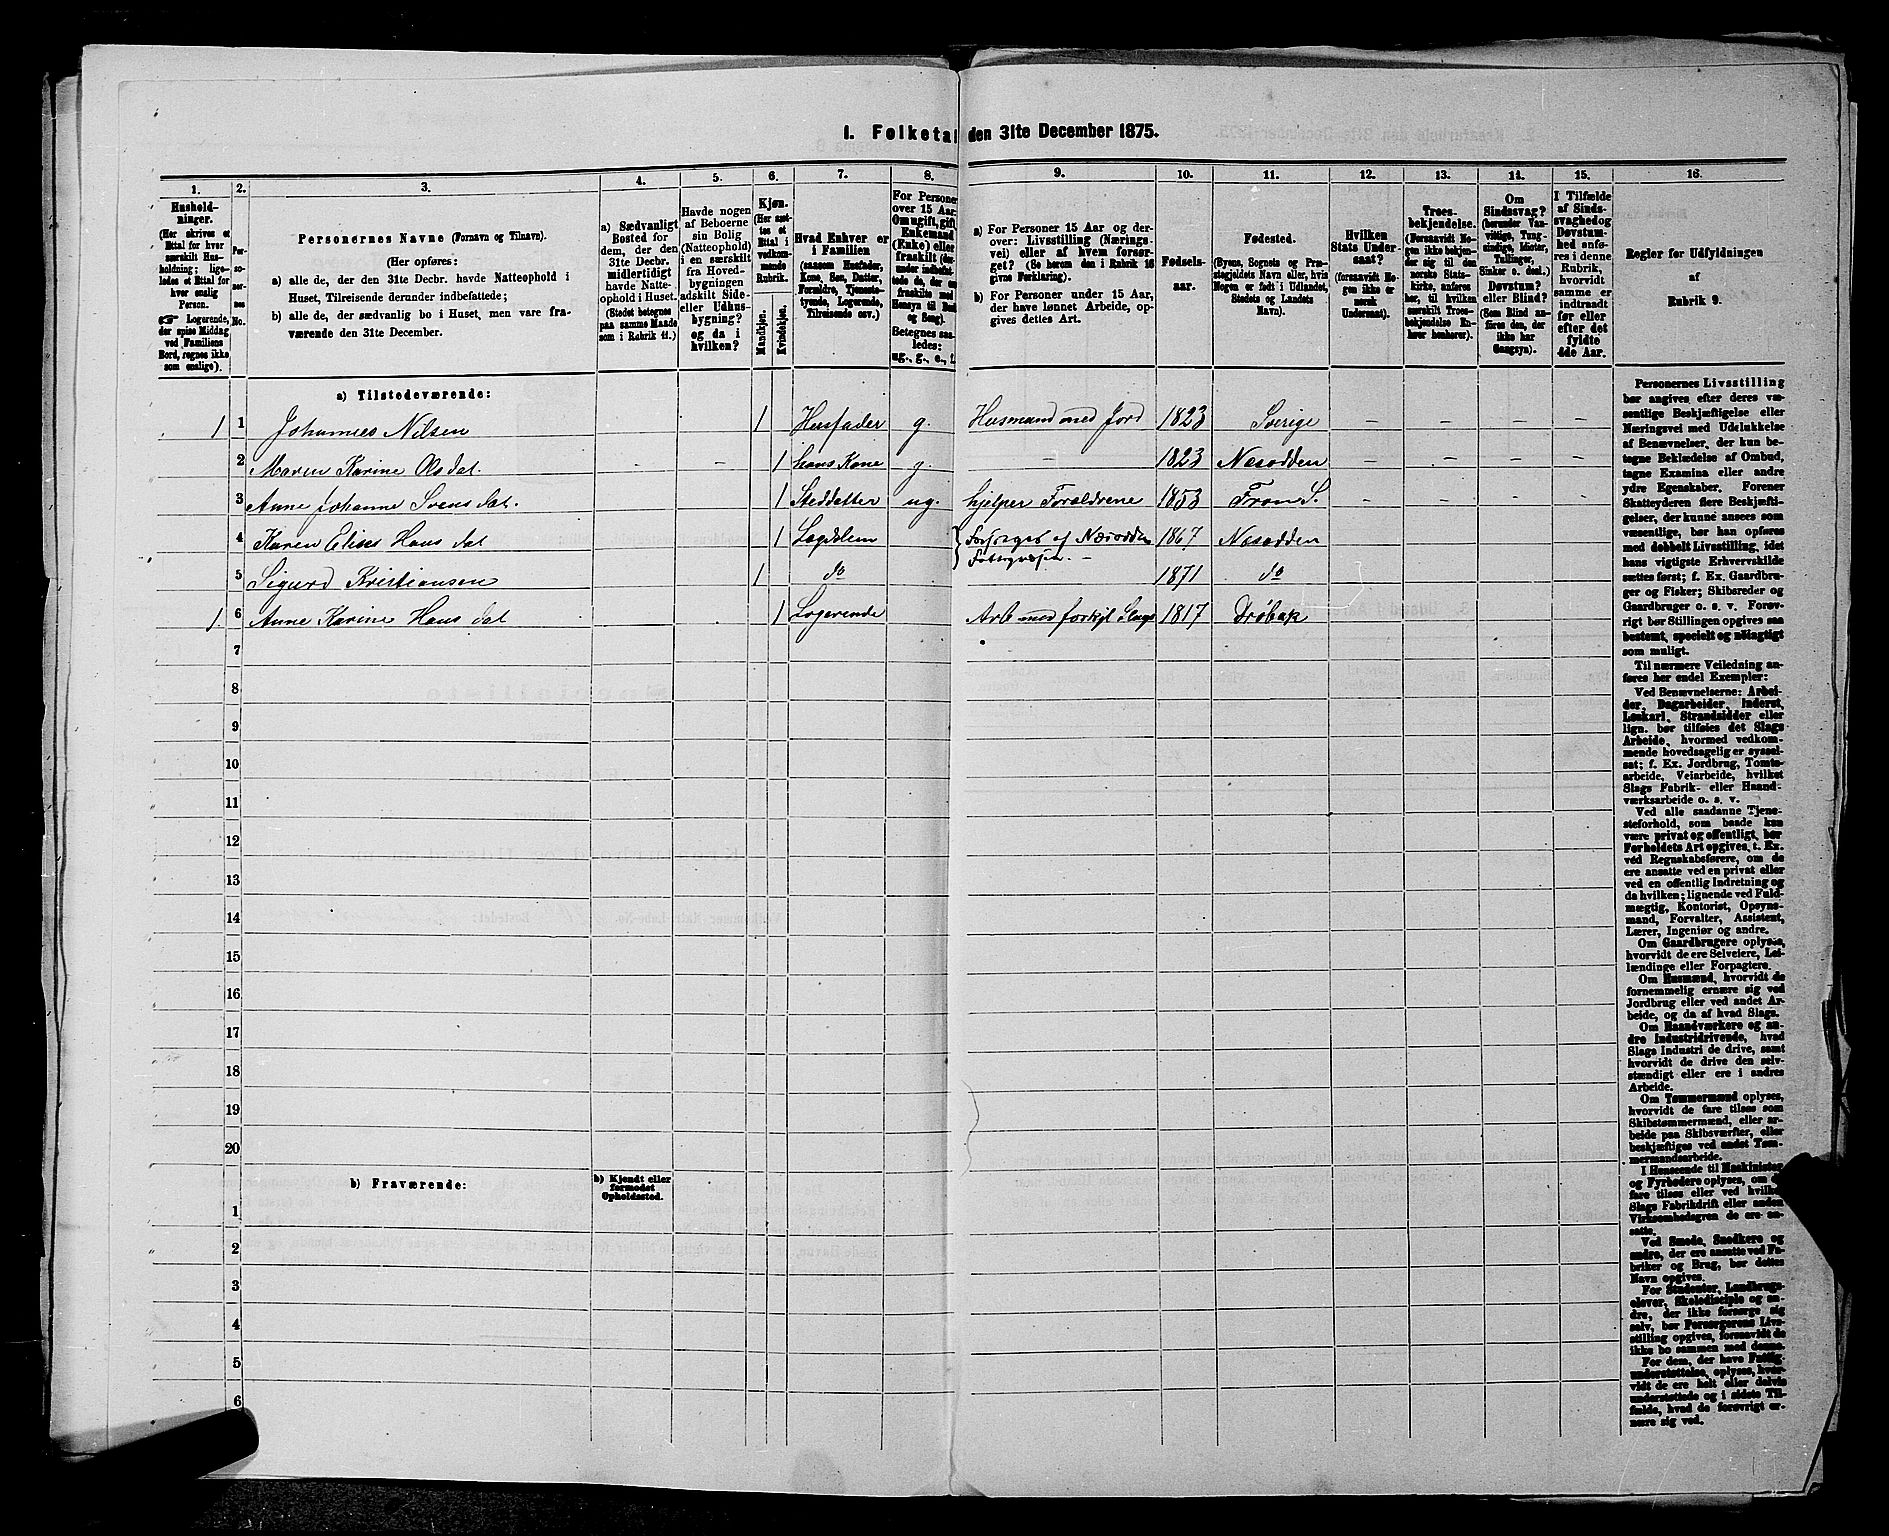 1. Folketal den 31te December 1875.
1. 2. 3. 4. 5. 6. 7. 8. 9. 10. 11. 12. 13. 14. 15. 16.
Hushold-
ninger.
(Her skrives et
Ettal for hver
særskilt Hus-
holdning; lige-
ledes et Ettal for
hver enslig
Person.
☞ Logerende,
der spise Middag
ved Familiens
Bord, regnes ikke
som enslige).
Per-
so-
ner-
nes
No.
Personernes Navne (Fornavn og Tilnavn).
(Her opføres:
a) alle de, der den 31te Decbr. havde Natteophold i
Huset, Tilreisende derunder indbefattede;
b) alle de, der sædvanlig bo i Huset, men vare fra-
værende den 31te December.
a) Sædvanligt
Bosted for
dem, der den
31te Decbr.
midlertidigt
havde Natte-
ophold i Huset.
(Stedet betegnes
paa samme Maade
som i Rubrik 11.)
Havde nogen
af Beboerne
sin Bolig
(Natteophold)
i en særskilt
fra Hoved-
bygningen
adskilt Side-
eller Udhus-
bygning?
og da i
hvilken?
Kjøn.
(Her sæt-
tes et
Ettal i
vedkom-
mende
Rubrik.
Mandkjøn.
Kvindekjøn.
Hvad Enhver er
i Familien
(saasom Husfader,
Kone, Søn, Datter,
Forældre, Tjeneste-
tyende, Logerende,
Tilreisende osv.)
For Personer
over 15 Aar:
Om ugift, gift,
Enkemand
(Enke) eller
fraskilt (der-
under indbefat-
tede de, der ere
fraskilte med
Hensyn til Bord
og Seng).
Betegnes saa-
ledes:
ug., g., e., f.
a) For Personer 15 Aar og der-
over: Livsstilling (Nærings-
vei) eller af hvem forsør-
get? (Se herom den i Rubrik 16
givne Forklaring).
b) For Personer under 15 Aar,
der have lønnet Arbeide, op-
gives dettes Art.
Fødsels-
aar.
Fødested.
(Byens, Sognets og Præ-
stegjeldets Navn eller, hvis
Nogen er født i Udlandet,
Stedets og Landets
Navn).
Hvilken
Stats Under-
saat?
(forsaavidt No-
gen ikke er
norsk
Undersaat).
Troes-
bekjendelse.
(Forsaavidt No-
gen ikke bekjen-
der sig til den
norske Stats-
kirke, anføres
her, til hvilken
særskilt Troes-
bekjendelse En-
hver henhører).
Om
Sindssvag?
(herunder Van-
vittige, Tung-
sindige, Idioter,
Tullinger,
Sinker o. desl.)
Døvstum?
eller Blind?
(Som Blind an-
føres den, der
ikke har
Gangsyn).
I Tilfælde
af Sinds-
svaghed og
Døvstum-
hed anfø-
res i denne
Rubrik,
hvorvidt
samme er
indtraadt
før eller
efter det
fyldte
4de Aar.
Regler for Udfyldningen
af
Rubrik 9.
a) Tilstedeværende:
1 1 Johannes Nilsen 1 Husfader g. Husmand med Jord 1823 Sverige – – – –
2 Maren Karine Olsdat. – – 1 hans Kone g. – 1823 Nesodden – – – –
3 Anne Johanne Svensdat. 1 Steddatter ug. hjelper Forældrene 1853 Fron S. – – – –
4 Karen Elise Hansdat 1 Lægdslem Forsørges af Næsodden 1867 Nesodden
Fattigvæsen. –
5 Sigurd Kristiansen 1 do 1871 do
1. 6 Anne Karine Hansdat 1 Logerende Arb med forskjl Slags 1817 Drøbak
7
8
9
10
11
12
13
14
15
16
17
18
19
20
b) Fraværende:
b) Kjendt eller
formodet
Opholdssted.
1
2
3
4
5
6
Personernes Livsstilling
bør angives efter deres væ-
sentlige Beskjæftigelse eller
Næringsvei med Udelukkelse
af Benævnelser, der kun be-
tegne Beklædelse af Ombud,
tagne Examina eller andre
ydre Egenskaber. Forener
Skatteyderen flere Beskjæfti-
gelser, der kunne ansees som
væsentlige, bør han opføres
med dobbelt Livsstilling, idet
hans vigtigste Erhvervskilde
sættes først; f. Ex. Gaardbru-
ger og Fisker; Skibsreder og
Gaardbruger o. s. v. Forøv-
rigt bør Stillingen opgives saa
bestemt, specielt og nöiagtigt
som muligt.
Til nærmere Veiledning an-
føres her endel Exempler:
Ved Benævnelserne: Arbei-
der, Dagarbeider, Inderst,
Løskarl, Strandsidder eller
lign. bør tilføies det Slags
Arbeide, hvormed vedkom-
mende hovedsagelig er syssel-
sat; f. Ex. Jordbrug, Tomte-
arbeide, Veiarbeide, hvilket
Slags Fabrik- eller Haand-
værksarbeide o. s. v.
Ved alle saadanne Tjene-
steforhold, som baade kan
være privat og offentligt, bør
Forholdets Art opgives, t. Ex.
ved Regnskabsførere, om de
ere ansatte ved en privat eller
ved en offentlig Indretning og
da hvilken; lignende ved Fuld-
mægtig, Kontorist, Opsyns-
mand, Forvalter, Assistent,
Lærer, Ingeniør og andre.
Om Gaardbrugere oplyses,
hvorvidt de ere Selveiere, Lei-
lændinge eller Forpagtere.
Om Husmænd, hvorvidt de
fornemmelig ernære sig ved
Jordbrug eller ved andet Ar-
beide, og da af hvad Slags.
Om Haandværkere og an-
dre Industridrivende, hvad
Slags Industri de drive, samt
hvorvidt de drive den selv-
stændigt eller ere i andres
Arbeide.
Om Tømmermænd oplyses,
hvorvidt de fare tilsøs som
Skibstømmermænd, eller ar-
beide paa Skibsværfter, eller
beskjæftiges ved andet Tøm-
mermandsarbeide.
I Henseende til Maskinister
og Fyrbødere oplyses, om de
fare tilsøs eller ved hvilket
Slags Fabrikdrift eller anden
Virksomhedsgren de ere an-
satte.
Ved Smede, Snedkere og
andre, der ere ansatte ved Fa-
briker og Brug, bør dettes
Navn opgives.
For Studenter, Landbrugs-
elever, Skoledisciple og an-
dre, der ikke forsørge sig
selv, bør Forsørgerens Livs-
stilling opgives, forsaavidt de
ikke bo sammen med denne.
For dem, der have Fattig-
understøttelse, oplyses, hvor-
vidt de ere helt eller delvis
understøttede og i sidste Til-
fælde, hvad de forøvrigt er-
nære sig ved.